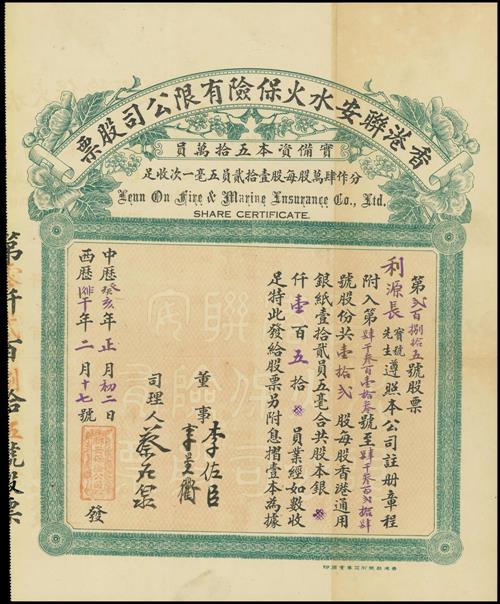 香港聯安水火保險有限公司股票
實備資本五拾萬員
分作肆萬股每股壹拾貳員五毫一次收足
Lenn On Fire & Marine Insurance Co., Ltd.
SHARE CERTIFICATE.
第弍百捌拾五號股票
利源長寶號先生遵照本公司註冊章程
附入第肆千叁百壹拾叁號至肆千叁百弍拾肆
號股份共壹拾弍股每股香港通用
銀紙壹拾貳員五毫合共股本銀※
仟壹百五拾※員業經如數收
足特此發給股票另附息摺壹本為據
董事 李佐臣
李星衢
司理人 蔡石泉
中歷癸亥年正月初二日
西歷年二月十七號 發
第零仟弍百捌拾五號股票